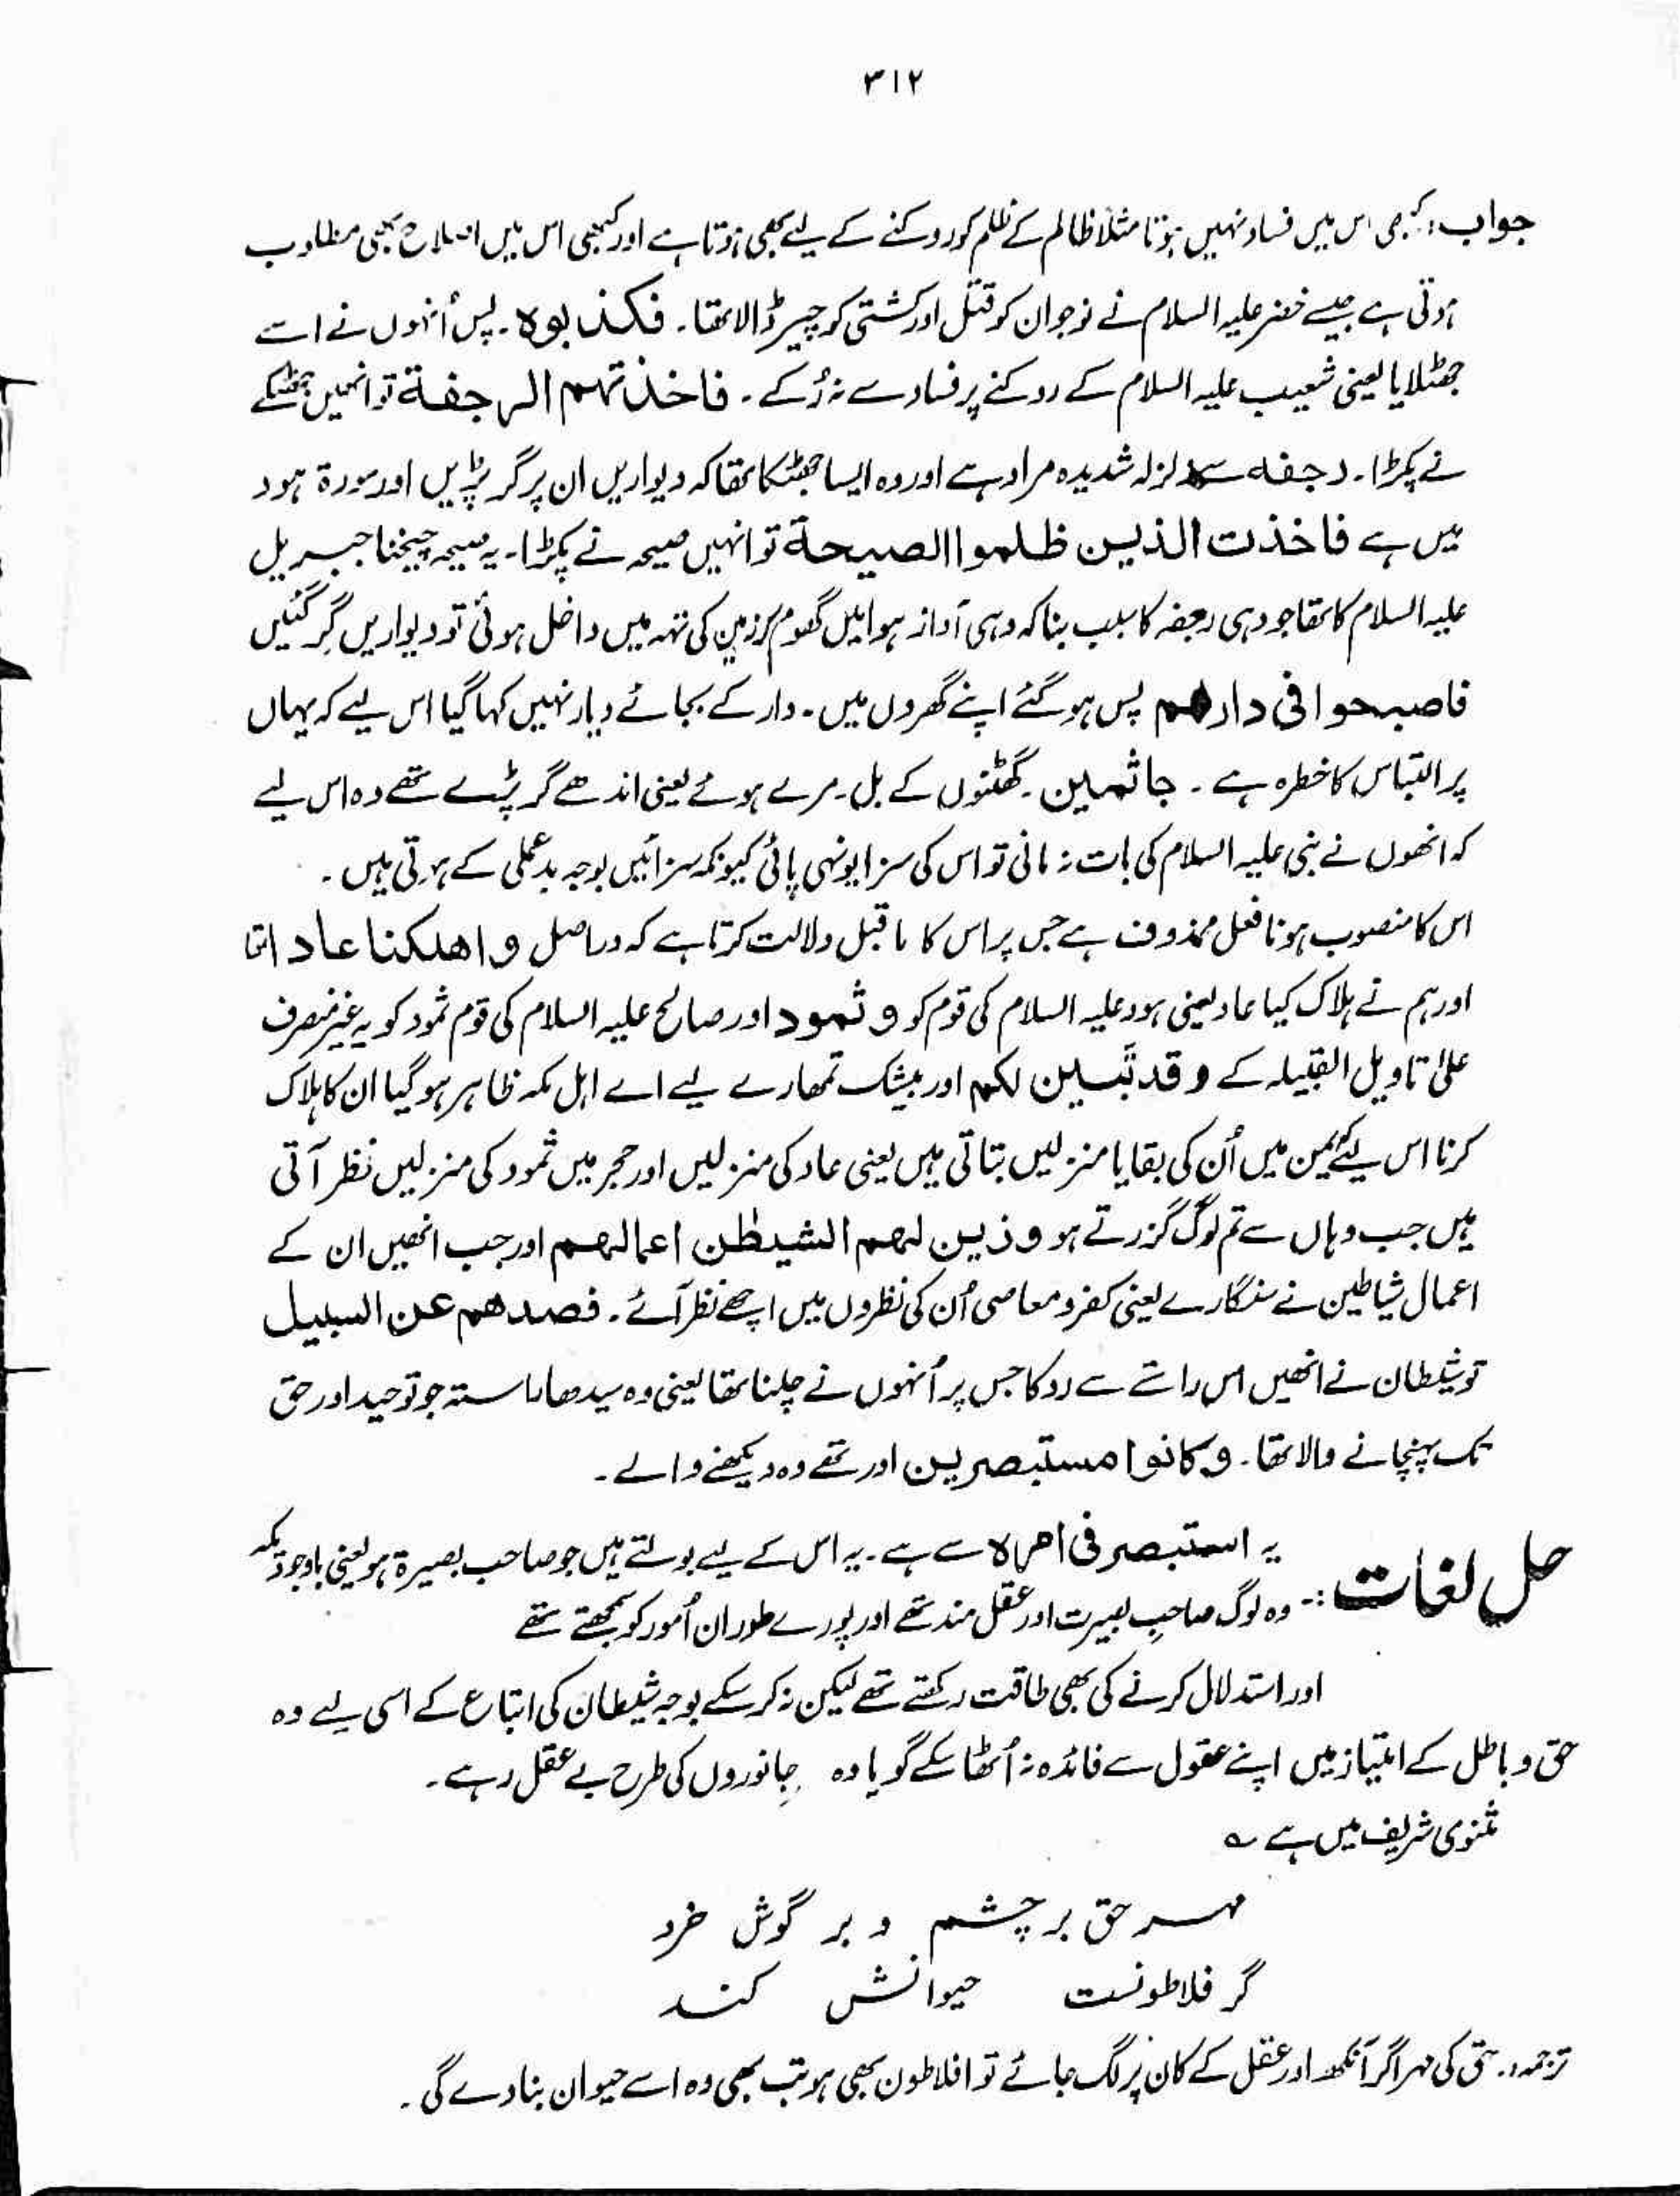 ۳۱۲
جواب :۔ کبھی اس میں فساد نہیں ہوتا مثلاً ظالم کے ظلم کو روکنے کے لیے بھی ہوتا ہے اور کبھی اس میں اصلاح بھی مطلوب
ہوتی ہے جیسے خضر علیہ السلام نے نوجوان کو قتل اور کشتی کو چیر ڈالا تھا۔ فکذبوہ۔ پس اُنہوں نے اسے
جھٹلایا یعنی شعیب علیہ السلام کے روکنے پر فساد سے نہ رُکے۔ فاخذتھم الرجفة تو انھیں جھٹکے
نے پکڑا۔ رجفہ سے زلزلہ شدیدہ مراد ہے اور وہ ایسا جھٹکا تھا کہ دیواریں ان پر گر پڑیں اور سورۃ ہود
میں ہے فاخذت الذین ظلموا الصیحة تو انہیں صیحہ نے پکڑا۔ یہ صیحہ چیخنا جبریل
علیہ السلام کا تھا جو وہی رجفہ کا سبب بنا کہ وہی آواز ہوا میں گھوم کر زمین کی تہہ میں داخل ہوئی تو دیواریں گر گئیں
فاصبحوا فی دارھم پس ہو گئے اپنے گھروں میں۔ دار کے بجائے دیار نہیں کہا گیا اس لیے کہ یہاں
پر التباس کا خطرہ ہے۔ جاثمین۔ گھٹنوں کے بل۔ مرے ہوئے یعنی اندھے گر پڑے تھے وہ اس لیے
کہ انھوں نے نبی علیہ السلام کی بات نہ مانی تو اس کی سزا یونہی پائی کیونکہ سزائیں بوجہ بدعملی کے ہوتی ہیں۔
اس کا منصوب ہونا فعل محذوف ہے جس پر اس کا ما قبل دلالت کرتا ہے کہ دراصل و اھلکنا عاد اتھا
اور ہم نے ہلاک کیا عاد یعنی ہود علیہ السلام کی قوم کو و ثمود اور صالح علیہ السلام کی قوم ثمود کو یہ غیر منصرف
علیٰ تاویل القبیلہ کے و قد تّبین لکم اور بیشک تمھارے لیے اے اہل مکہ ظاہر ہو گیا ان کا ہلاک
کرنا اس لیے کہ یمن میں اُن کی بقایا منزلیں بتاتی ہیں یعنی عاد کی منزلیں اور حجر میں ثمود کی منزلیں نظر آتی
ہیں جب وہاں سے تم لوگ گزرتے ہو و زین لھم الشیطٰن اعمالھم اور جب انھیں ان کے
اعمال شیاطین نے سنگارے یعنی کفر و معاصی اُن کی نظروں میں اچھے نظر آئے۔ فصدھم عن السبیل
تو شیطان نے انھیں اس راستے سے روکا جس پر اُنہوں نے چلنا تھا یعنی وہ سیدھا راستہ جو توحید اور حق
تک پہنچانے والا تھا۔ و کانوا مستبصرین اور تھے وہ دیکھنے والے۔
حل لغات :۔ یہ استبصر فی امرہ سے ہے۔ یہ اس کے لیے بولتے ہیں جو صاحب بصیرۃ ہو یعنی باوجودیکہ
وہ لوگ صاحبِ بصیرت اور عقل مند تھے اور پورے طور ان اُمور کو سمجھتے تھے
اور استدلال کرنے کی بھی طاقت رکھتے تھے لیکن نہ کر سکے بوجہ شیطان کی اتباع کے اسی لیے وہ
حق و باطل کے امتیاز میں اپنے عقول سے فائدہ نہ اُٹھا سکے گویا وہ جانوروں کی طرح بے عقل رہے۔
مثنوی شریف میں ہے ؎
مہر حق بر چشم و بر گوش خرد
گر فلاطونست حیوانش کند
ترجمہ :۔ حق کی مہر اگر آنکھ اور عقل کے کان پر لگ جائے تو افلاطون بھی ہو تب بھی وہ اسے حیوان بنا دے گی۔